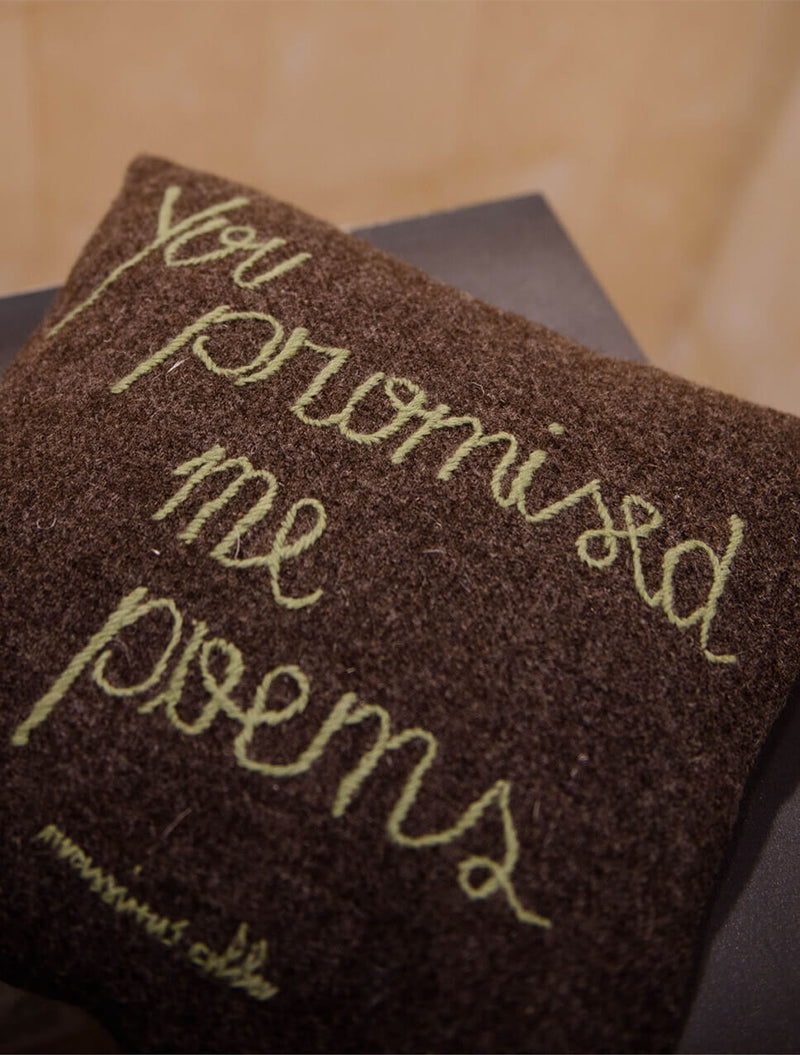 You
promised
me
poems